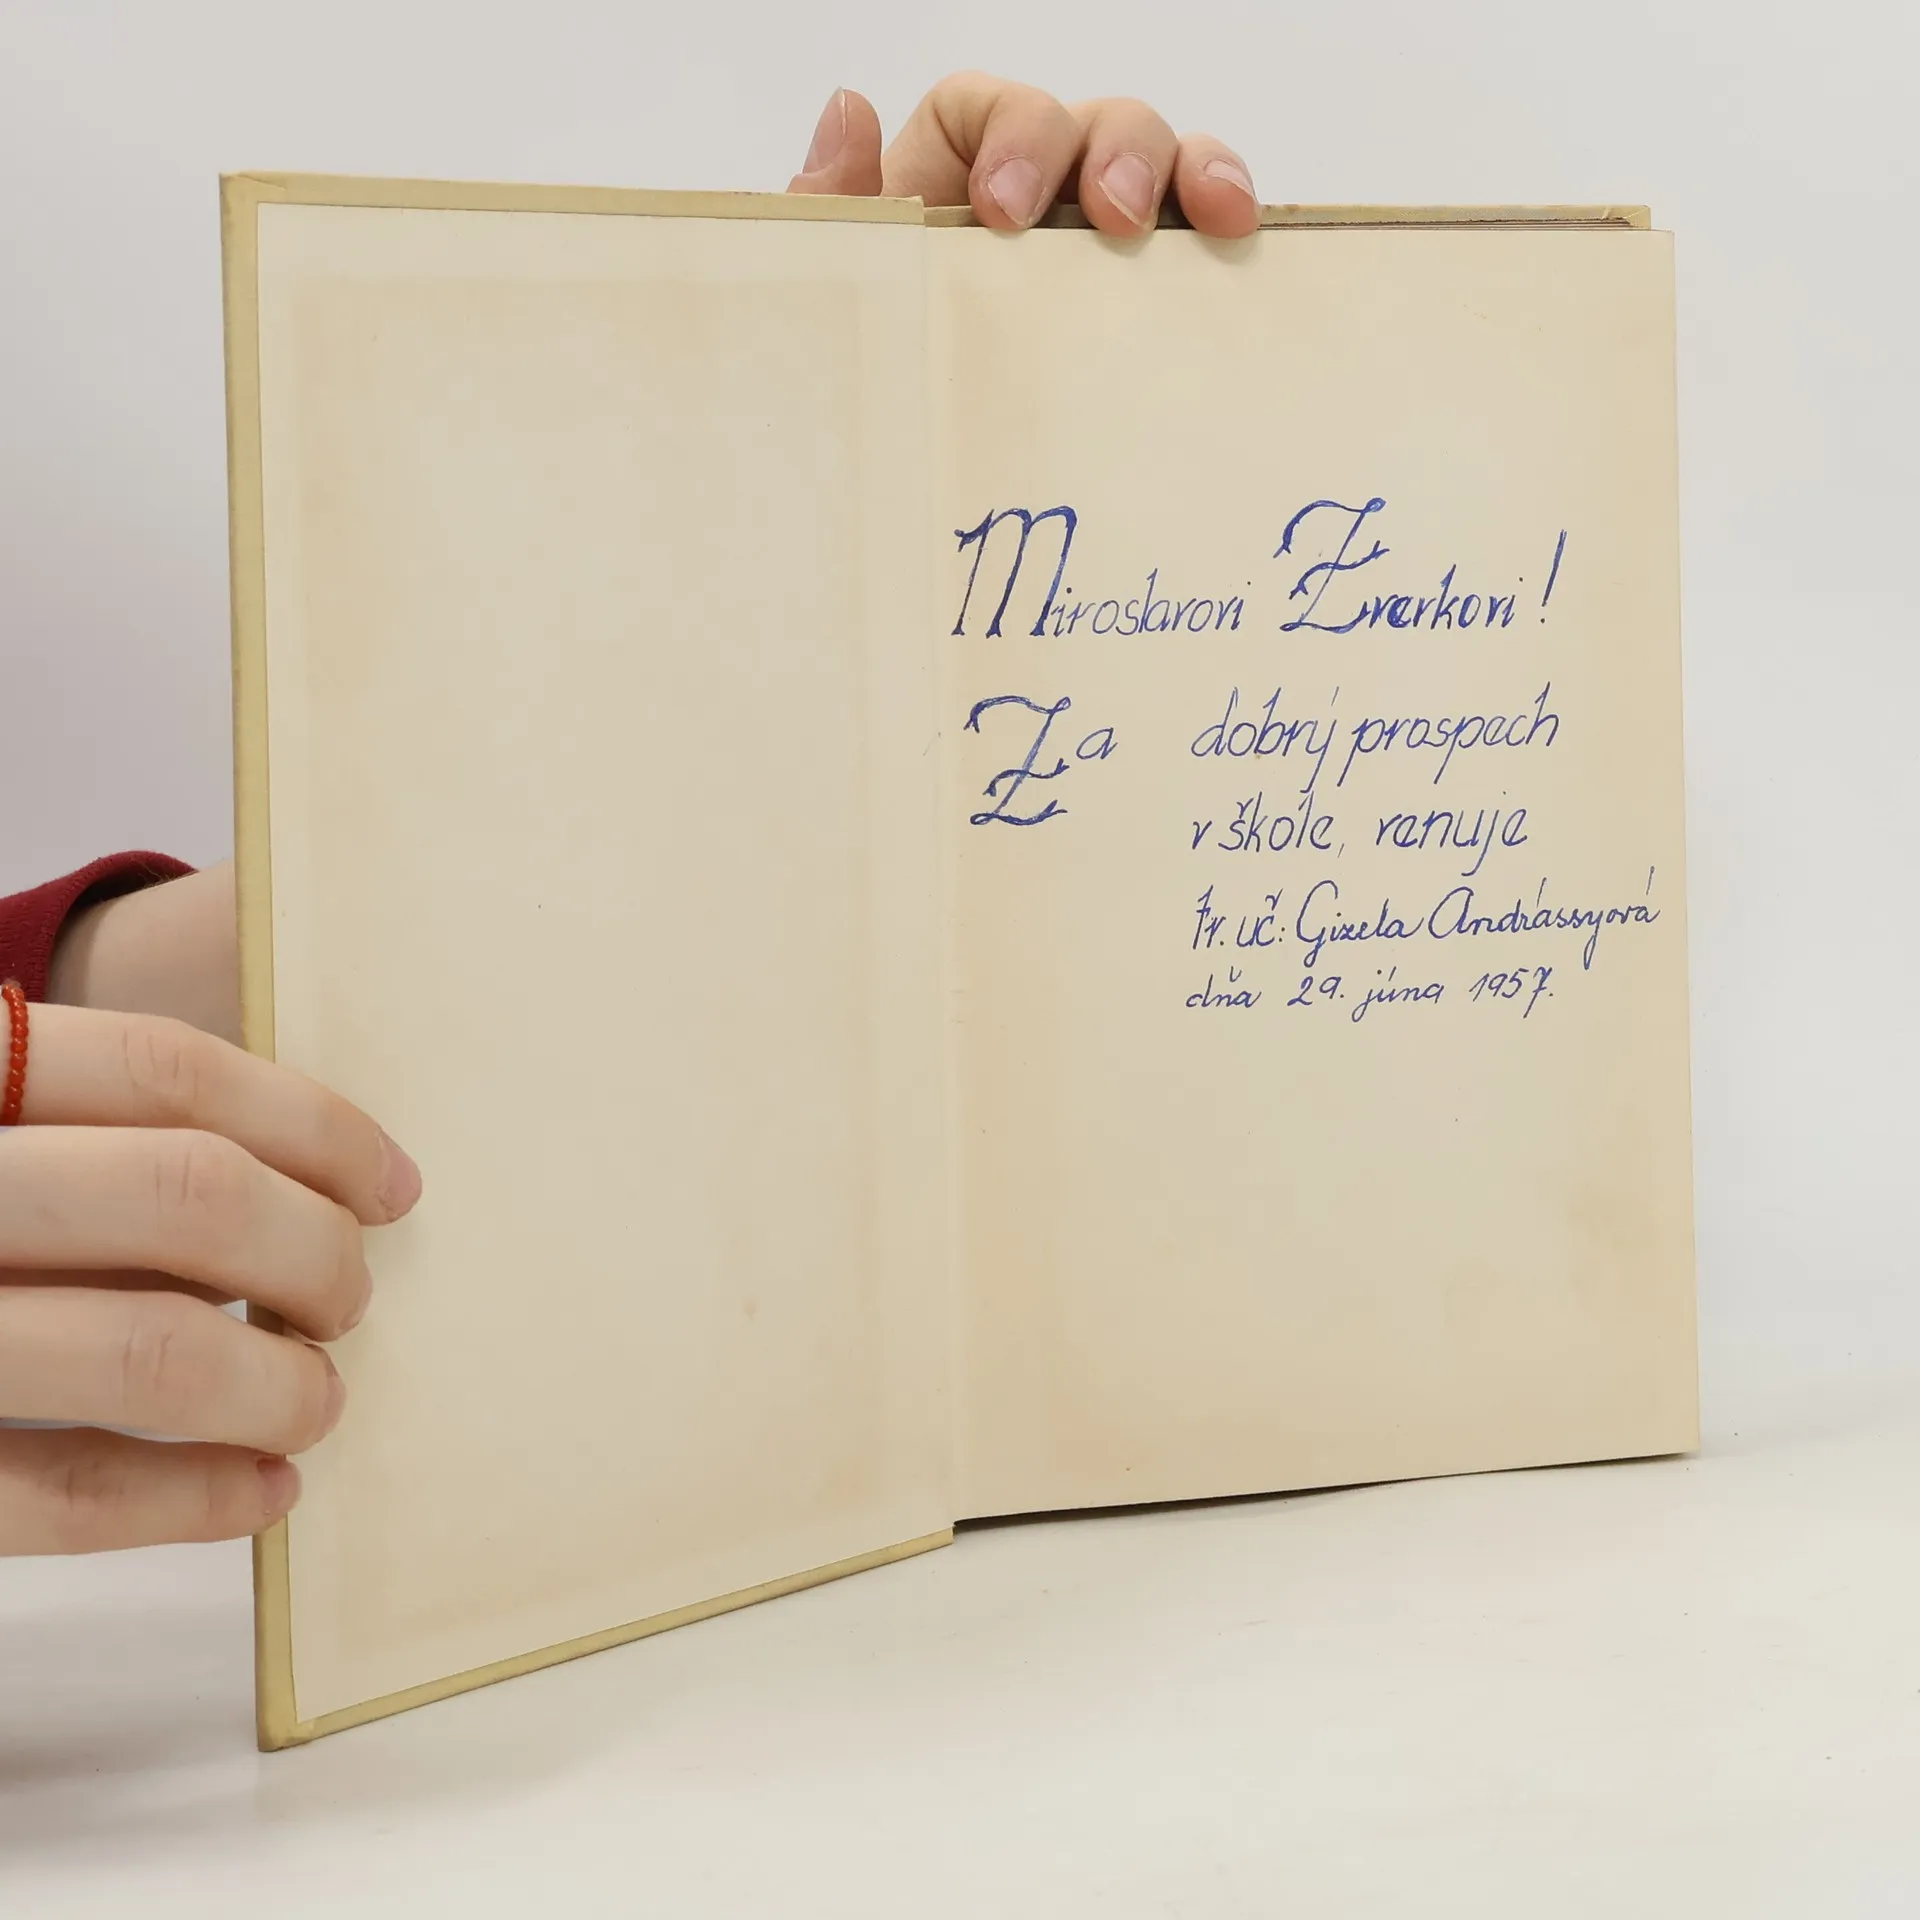 Miroslavovi Zverkovi!
Za dobrý prospech
v škole, venuje
tr. uč: Gizela Andrássyová
dňa 29. júna 1957.